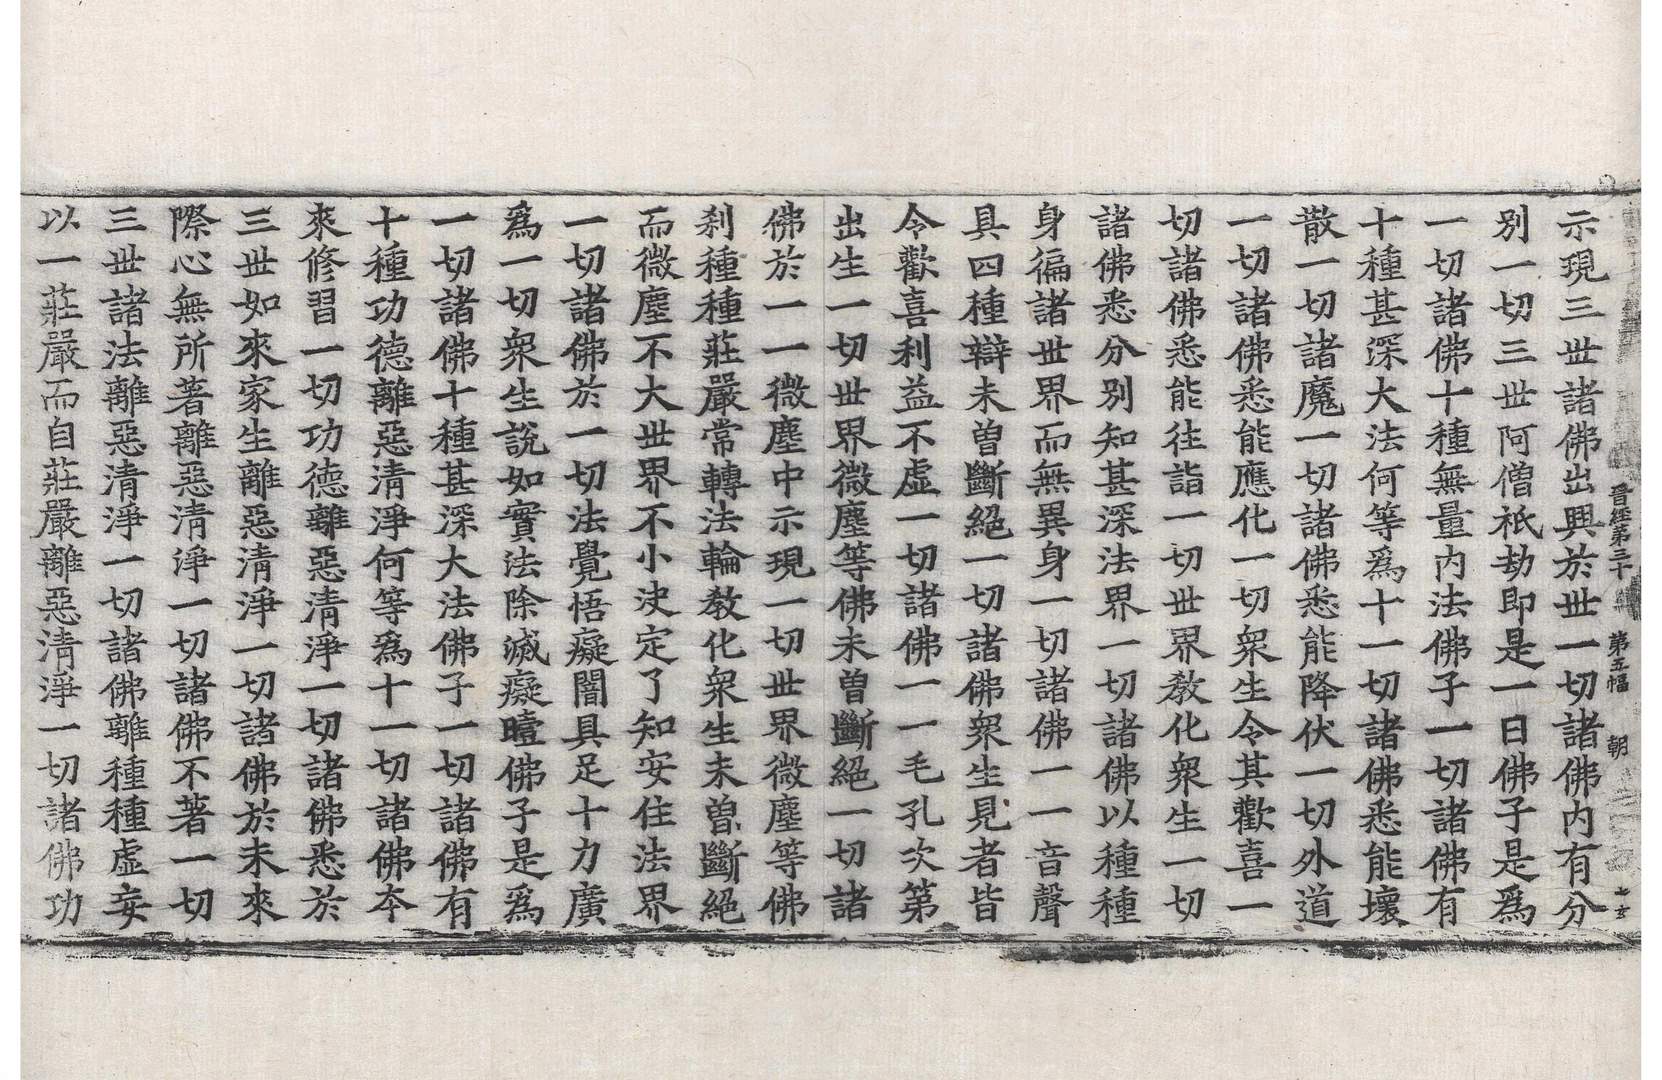 晋經第三十 第五幅 朝
示現三丗諸佛出興於丗一切諸佛內有分
別一切三丗阿僧祇劫即是一日佛子是爲
一切諸佛十種無量內法佛子一切諸佛有
十種甚深大法何等爲十一切諸佛悉能壞
散一切諸魔一切諸佛悉能降伏一切外道
一切諸佛悉能應化一切衆生令其歡喜一
切諸佛悉能往詣一切丗界教化衆生一切
諸佛悉分別知甚深法界一切諸佛以種種
身徧諸丗界而無異身一切諸佛一一音聲
具四種辯未曽斷絕一切諸佛衆生見者皆
令歡喜利益不虛一切諸佛一一毛孔次第
出生一切丗界微塵等佛未曽斷絕一切諸
佛於一一微塵中示現一切丗界微塵等佛
刹種種莊嚴常轉法輪教化衆生未曽斷絕
而微塵不大丗界不小決定了知安住法界
一切諸佛於一切法覺悟癡闇具足十力廣
爲一切衆生說如實法除滅癡曀佛子是爲
一切諸佛十種甚深大法佛子一切諸佛有
十種功德離惡清淨何等爲十一切諸佛本
來修習一切功德離惡清淨一切諸佛悉於
三丗如來家生離惡清淨一切諸佛於未來
際心無所著離惡清淨一切諸佛不著一切
三丗諸法離惡清淨一切諸佛離種種虛妄
以一莊嚴而自莊嚴離惡清淨一切諸佛功